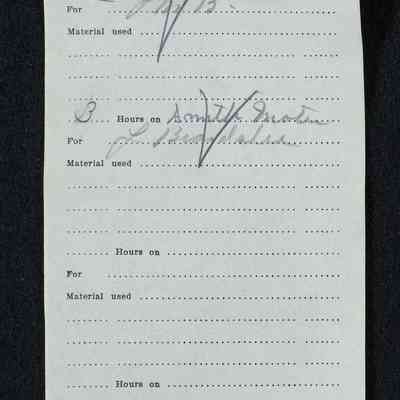 For
Material used
3 Hours on Smith Motor
For L
Material used
Hours on
For
Material used
Hours on